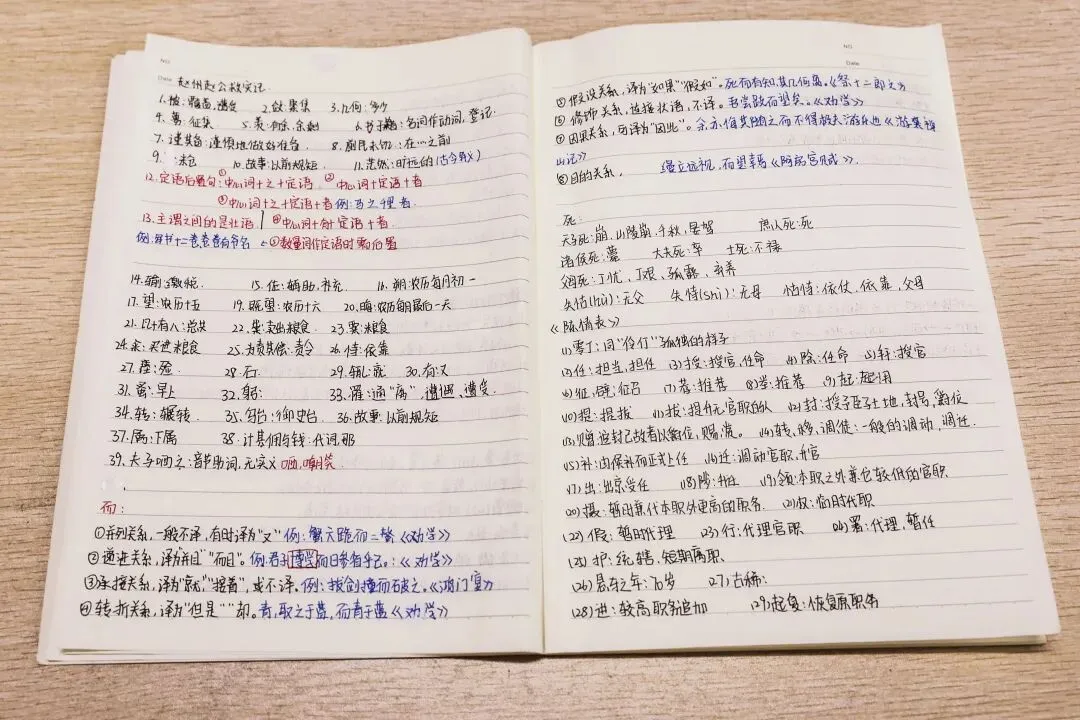 NO
Date 赵州赵公救灾记
1.被:覆盖,遭受 2.敛:聚集 3.几何:多少
4.募:征集 5.羡:有余,余剩 6.书于籍:名词作动词,登记.
7.谨其备:谨慎地做好准备 8.在…之前
9. 10.故事:以前规矩 11.茫然:时远的(古今异义)
12.定语后置句:①中心词+之+定语 ②中心词+定语+者
③中心词+之+定语+者 例:马之千里者.
13.主谓之间的是状语 ④中心词+而+定语+者.
例:军书十二卷,卷卷有爷名 ⑤数量词作定语时需后置
14.输:缴税. 15.佐:辅助,补充 16.朔:农历每月初一
17.望:农历十五 19.既望:农历十六 20.晦:农历每月最后一天
21.凡十有八:总共 22.粜:卖出粮食. 23.粟:粮食
24.籴:买进粮食 25.为责其偿:责令 26.恃:依靠
27. 28. 29.辄:就 30.有:又
31.蚤:早上 32.躬: 33.罹:通“罹”遭遇,遭受.
34.转:辗转. 35.台:御史台. 36.故事:以前规矩
37.属:下属 38.计其佣与钱:代词,那
39.夫子哂之:音节助词,无实义 哂,嘲笑.
而:
①并列关系,一般不译,有时译为“又” 例:蟹六跪而二螯《劝学》
②递进关系,译为“并且”“而且”. 例:君子博学而日参省乎己.:《劝学》
③承接关系,译为“就”“接着”,或不译.例:拔剑撞而破之.《鸿门宴》
④转折关系,译为“但是”“却.青,取之于蓝,而青于蓝《劝学》
NO
Date
⑤假设关系,译为“如果”“假如”.死而有知,其几何离.《祭十二郎文》
⑥修饰关系,连接状语,不译.吾尝跂而望矣.《劝学》
⑦因果关系,可译为“因此”.余亦悔其随之而不得极夫游之乐也《游褒禅
山记》
⑧目的关系. 缦立远视,而望幸焉《阿房宫赋》.
死:
天子死:崩,山陵崩,千秋,晏驾 庶人死:死
诸侯死:薨 大夫死:卒 士死:不禄
父母死:丁忧,丁艰,孤露,弃养
失怙(hù):无父 失恃(shì):无母 怙恃:依仗,依靠,父母
《陈情表》
(1)零丁:同“伶仃”孤独的样子
(2)任:担当,担任 (3)授:授官,任命 (4)除:任命 (5)拜:授官
(6)征,辟:征召 (7)荐:推荐 (8)举:推荐 (9)起:起用
(10)提:提拔 (11)拔:提升无官职的人 (12)封:授予臣子土地,封号,爵位
(13)赠:追封已故者以爵位,赐,谥. (14)转,移,调,徙:一般的调动,调迁.
(15)补:由候补而正式上任 (16)迁:调动官职,升官
(17)出:出京受任 (18)陟:升任 (19)领:本职之外兼它较低的官职
(20)摄:暂时兼代本职外更高的职务. (21)权:临时代职
(22)假:暂时代理 (23)行:代理官职 (24)署:代理,暂任
(25)护:统辖,短期离职.
(26)悬车之年:70岁 (27)古稀:
(28)进:较高职务追加 (29)起复:恢复原职务